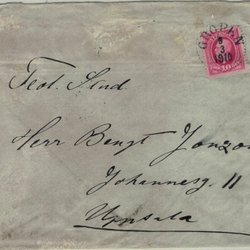 GROPEN
8
3
1910
10
Teol. Stud.
Herr Bengt Jonzon
Johannesg. 11
Upsala